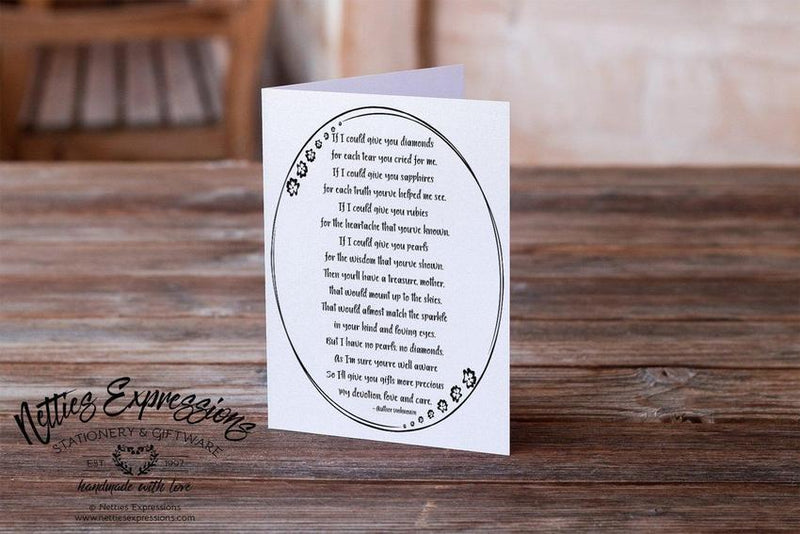 If I could give you diamonds
for each tear you cried for me.
If I could give you sapphires
for each truth you've helped me see.
If I could give you rubies
for the heartache that you've known.
If I could give you pearls
for the wisdom that you've shown.
Then you'll have a treasure, mother,
that would mount up to the skies.
That would almost match the sparkle
in your kind and loving eyes.
But I have no pearls, no diamonds,
As I'm sure you're well aware
So I'll give you gifts more precious
my devotion, love and care.
- Author unknown
Netties Expressions
STATIONERY & GIFTWARE
EST 1997
handmade with love
© Netties Expressions
www.nettiesexpressions.com